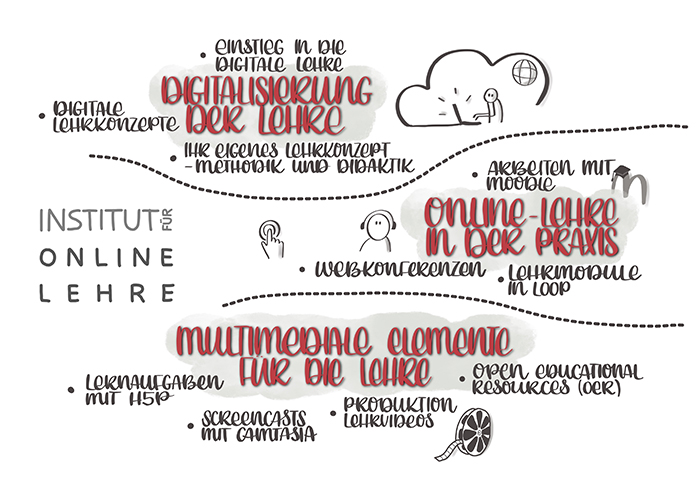 • EINSTIEG IN DIE
DIGITALE LEHRE
DIGITALISIERUNG
DER LEHRE
• DIGITALE
LEHRKONZEPTE
• IHR EIGENES LEHRKONZEPT
- METHODIK UND DIDAKTIK
• ARBEITEN MIT
MOODLE
m
ONLINE-LEHRE
IN DER PRAXIS
INSTITUT FÜR
ONLINE
LEHRE
• WEBKONFERENZEN
• LEHRMODULE
IN LOOP
MULTIMEDIALE ELEMENTE
FÜR DIE LEHRE
• LERNAUFGABEN
MIT H5P
• SCREENCASTS
MIT CAMTASIA
• PRODUKTION
LEHRVIDEOS
• OPEN EDUCATIONAL
RESOURCES (OER)